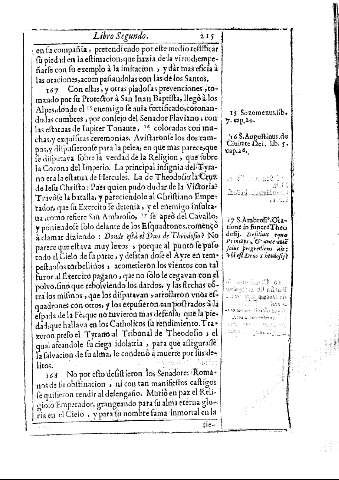 Libro Segundo. 215
en su compañia, pretendiendo por este medio testificar
su piedad en la estimacion, que hazia de la virtud, empe-
ñarse con su exemplo à la imitacion, y dàr mas eficàcia
las oraciones, acompañandolas con las de los Santos.
167 Con estas, y otras piadosas prevenciones, to-
mando por su Protector à San Iuan Baptista, llegò à los
Alpes, donde el 15 enemigo se avia fortificado, coronan-
do las cumbres, por consejo del Senador Flaviano, con
las estatuas de Iupiter Tonante, 16 coloradas con mu-
chas, y exquisitas ceremonias. Avistaronse los dos cam-
pos, y dispusieronse para la pelea, en que mas parece, que
se disputava sobre la verdad de la Religion, que sobre
la Corona del Imperio. La principal insignia del Tyra-
no era la estatua de Hercules. La de Theodosio la Cruz
de Iesu Christo: Pues quien pudo dudar de la Victoria?
Travòse la batalla, y pareciendole al Christiano Empe-
rador, que su Exercito se detenia, y el enemigo insulta-
va, como refiere San Ambrosio, 17 se apeò del Cavallo,
y poniendose solo delante de los Esquadrones, començò
à clamar diziendo: Donde està el Dios de Theodosio? No
parece que estava muy lexos, porque al punto se puso
todo el Cielo de su parte, y desatandose el Ayre en tem-
pestandos torbelinos, acometieron los vientos con tal
furor al Exercito pagano, que no solo le cegavan con el
polvo, sino que rebolviendo los dardos, y las flechas cõ-
tra los mismos, que los disputavan, arrollaron unos es-
quadrones con otros, y los expusieron tan postrados à la
espada de la Fè, que no tuvieron mas defensa, que la pie-
dad, que hallava en los Catholicos su rendimiento. Tra-
xeron preso el Tyrano al Tribunal de Theodosio, el
qual afeandole su ciega idolatria, para que assegurasse
la salvacion de su alma, le condenò à muerte por sus de-
litos.
168 No por esto desistieron los Senadores Roma-
nos de su obstinacion, ni con tan manifiestos castigos
se quisieron rendir al desengaño. Muriò en paz el Reli-
gioso Emperador, grangeando para su alma eterna glo-
ria en el Cielo, y para su nombre fama inmortal en la
tie-
15 Sozomenus, lib.
7. cap. 24.
16 S. Augustinus de
Civitate Dei, lib. 5.
cap. 26.
17 S. Ambros. Ora-
tione in funere Theo-
dosij.